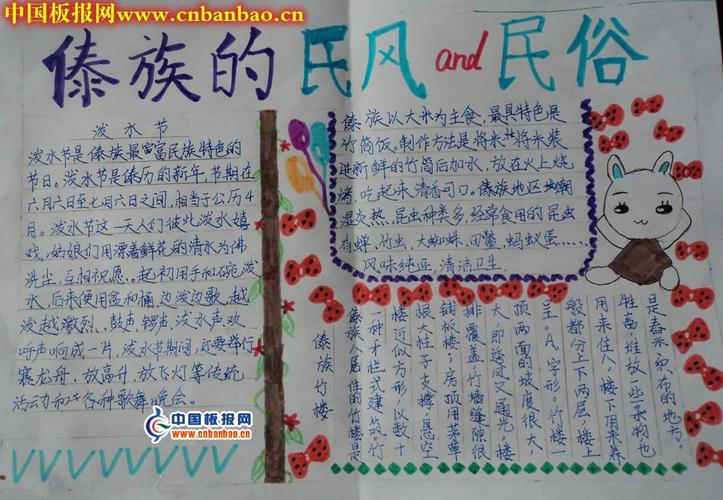 中国板报网
www.cnbanbao.cn
傣族的民风and民俗
泼水节
泼水节是傣族最富民族特色的
节日。泼水节是傣历的新年，节期在
六月六日至七月六日之间，相当于公历4
月。泼水节这一天人们彼此泼水嬉
戏，姑娘们用漂着鲜花的清水为佛
洗尘，互相祝愿。起初用手和碗泼
水，后来便用盆和桶，边泼边歌，越
泼越激烈、鼓声、锣声、泼水声、欢
呼声响成一片，泼水节期间，还要举行
赛龙舟，放高升，放飞灯等传统
活动和各种歌舞晚会。
傣族以大米为主食，最具特色是
竹筒饭。制作方法是将米装
进新鲜的竹筒后加水，放在火上烧
烤，吃起来清香可口。傣族地区
湿及热，昆虫种类多，经常食用的昆虫
有蝉，竹虫，大蜘蛛，田鳖，蚂蚁蛋……
风味纯正，清洁卫生
傣族竹楼
傣族人居住的竹楼是
一种干栏式建筑。竹
楼近似方形，以数十
根大柱子支撑，悬空
铺板楼；房顶用茅草
排覆盖，竹墙缝隙很
大，即透风又通光，楼
顶两面的坡度很大，
呈"A"字形。竹楼一
般都分上下两层，楼上
用来住人，楼下用来养
牲畜，堆放一些杂物也
是舂米、织布的地方。
中国板报网
www.cnbanbao.cn